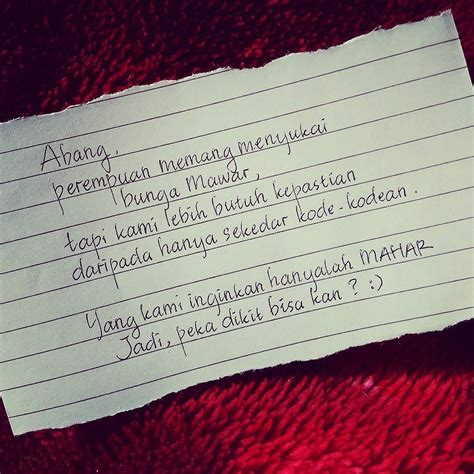 Abang,
perempuan memang menyukai
bunga Mawar,
tapi kami lebih butuh kepastian
daripada hanya sekedar kode-kodean.
Yang kami inginkan hanyalah MAHAR
Jadi, peka dikit bisa kan? :)